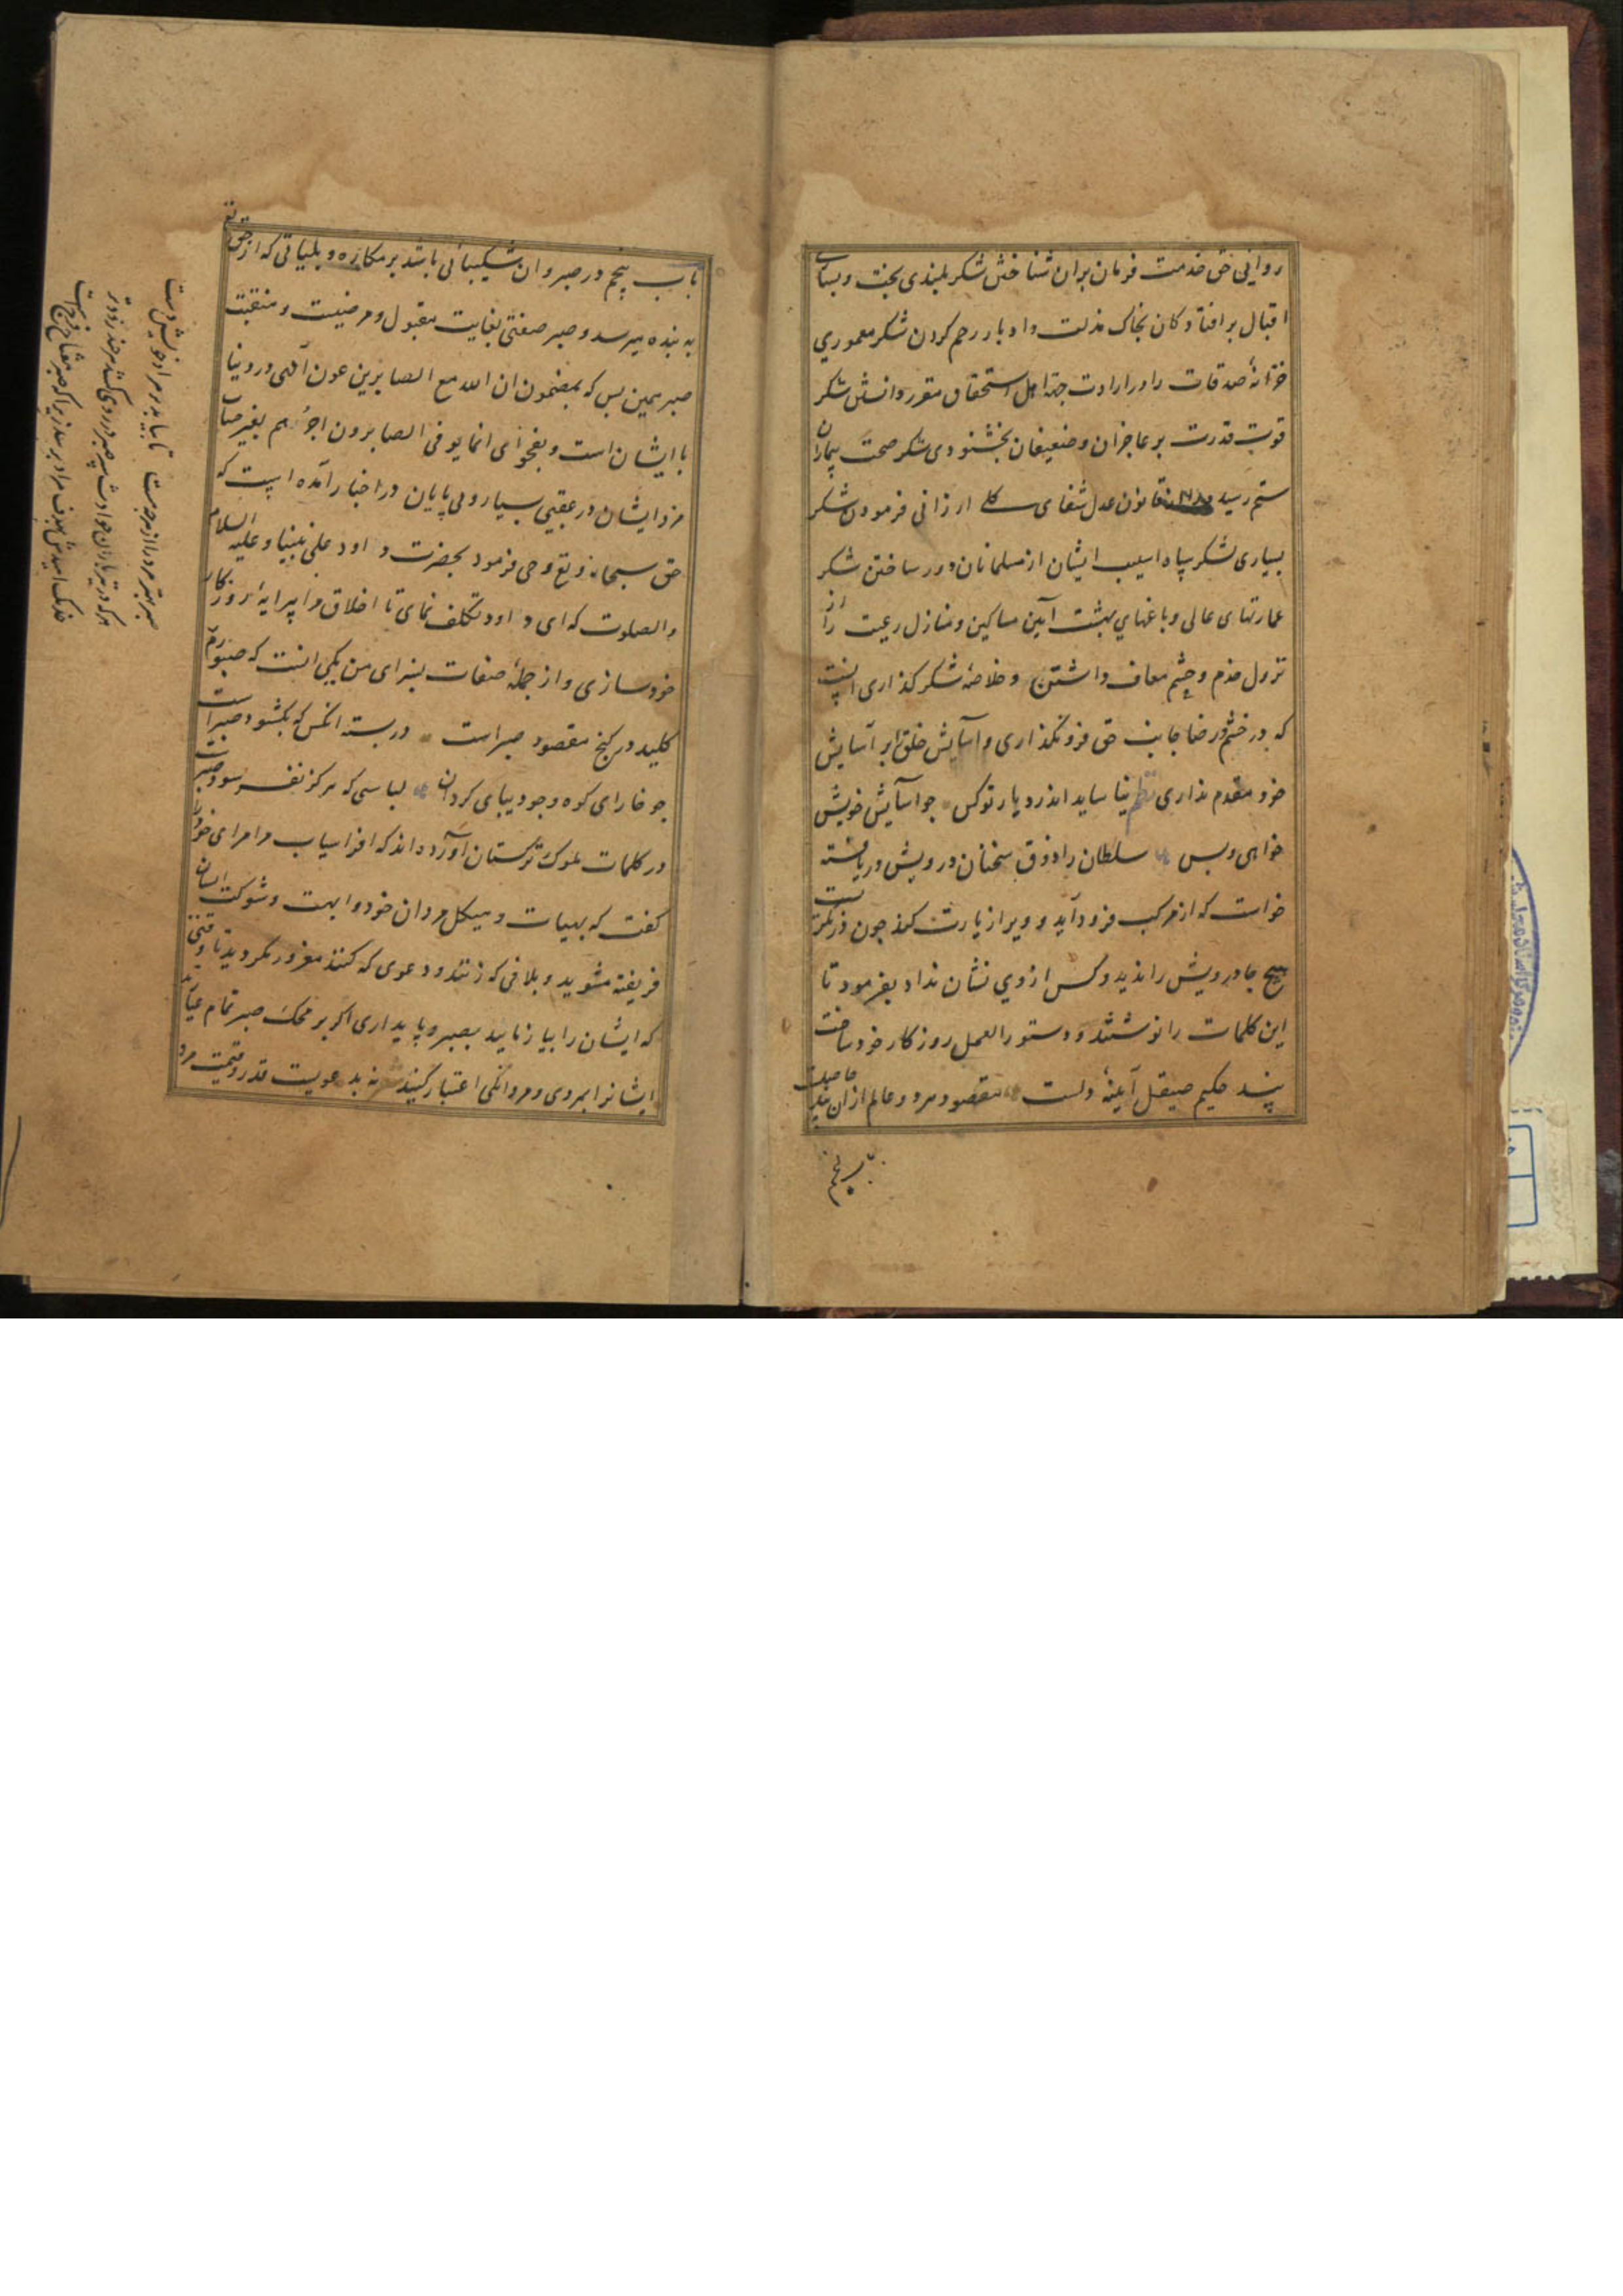 روانی حق خدمت فرمان بران شناختن شکر بلندی بخت و بسیاری
اقبال بر افتادکان بخاک مذلت و ادبار رحم کردن شکر معموری
خزانهٔ صدقات و ادرارات جهة اهل استحقاق مقرر داشتن شکر
قوت قدرت بر عاجزان و ضعیفان بخشنودی شکر صحت بیماران
ستم رسیده قانون عدل شفای کلی ارزانی فرمودن شکر
بسیاری لشکر سپاه اسیب ایشان از مسلمانان دور ساختن شکر
عمارتهای عالی و باغهای بهشت آیین مساکین و منازل رعیت را از
نزول خدم و حشم معاف داشتن و خلاصهٔ شکر کذاری انست
که در خشم و رضا جانب حق فرو نکذاری و آسایش خلق را بر آسایش
خود مقدم داری نظم نیاساید اندر دیار تو کس جو آسایش خویش
خواهی و بس سلطان را ذوق سخنان درویش دریافته
خواست که از مرکب فرود آید و ویرا زیارت کند جون در نکریست
هیچ جا درویش را ندید و کس از وی نشان نداد بفرمود تا
این کلمات را نوشتند و دستور العمل روزکار خود ساخت
پند حکیم صیقل آیینهٔ دلست مقصود هر دو عالم از ان پند حاصلست
باب پنجم
باب پنجم در صبر و ان شکیبائی باشد بر مکاره و بلیاتی که از حق تع
به بنده میرسد و صبر صفتی بغایت مقبول و مرضیست و منقبت
صبر همین بس که بمضمون ان الله مع الصابرین عون آلهی در دنیا
با ایشان است و بفحوای انما یوفی الصابرون اجرهم بغیر حساب
مزد ایشان در عقبی بسیار و بی پایان در اخبار آمده است که
حق سبحانه و تع وحی فرمود بحضرت داود علی نبینا و علیه السلام
والصلوت که ای داود تکلف نمای تا اخلاق مرا پیرایهٔ روزکار
خود سازی و از جملهٔ صفات بسزای من یکی انست که صبورم
کلید در کنج مقصود صبر است در بسته انکس که بکشود صبر است
جو خارای کوه وجود بیای کردان لباسی که هرکز نفرسود صبر است
در کلمات ملوک ترکستان آورده اند که افراسیاب مر امرای خود را
کفت که بهیات و هیکل مردان خود و ابهت و شوکت ایشان
فریفته مشوید و بلافی که زنند و دعوی که کنند مغرور نکردید تا وقتی
که ایشان را بیازمایید بصبر و پایداری اکر بر محک صبر تمام عیار آیند
ایشانرا بمردی و مردانکی اعتبار کنید نه بدعویست قدر و قیمت مرد
صبر بهتر مرد را از هر جه هست تا بیابد بر مراد خویش دست
هر که در تیر باران حوادث سپر صبر در روی کشد هر چند زودتر
خدنک امیدش بهدف مراد برسد زیرا که صبر مفتاح فرج است